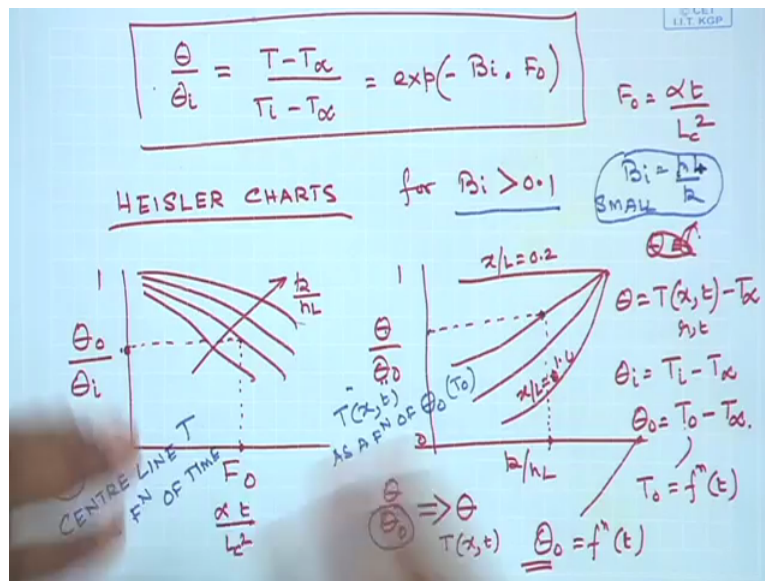 © CET
I.I.T. KGP
Θ/Θi = T-Tα/Ti-Tα = exp(-Bi. Fo)
Fo = αt/Lc²
HEISLER CHARTS for Bi > 0.1
Bi = hL/k
SMALL
1
Θo/Θi
k/hL
Fo
αt/Lc²
CENTRE LINE T
Fᴺ OF TIME
1
x/L = 0.2
Θ/Θo
0
k/hL
T(x,t)
AS A Fᴺ OF Θo (To)
Θ = T(x,t) - Tα
r,t
Θi = Ti - Tα
Θo = To - T∞.
To = fⁿ(t)
Θ/Θo ⇒ Θ
T(x,t)
Θo = fⁿ(t)